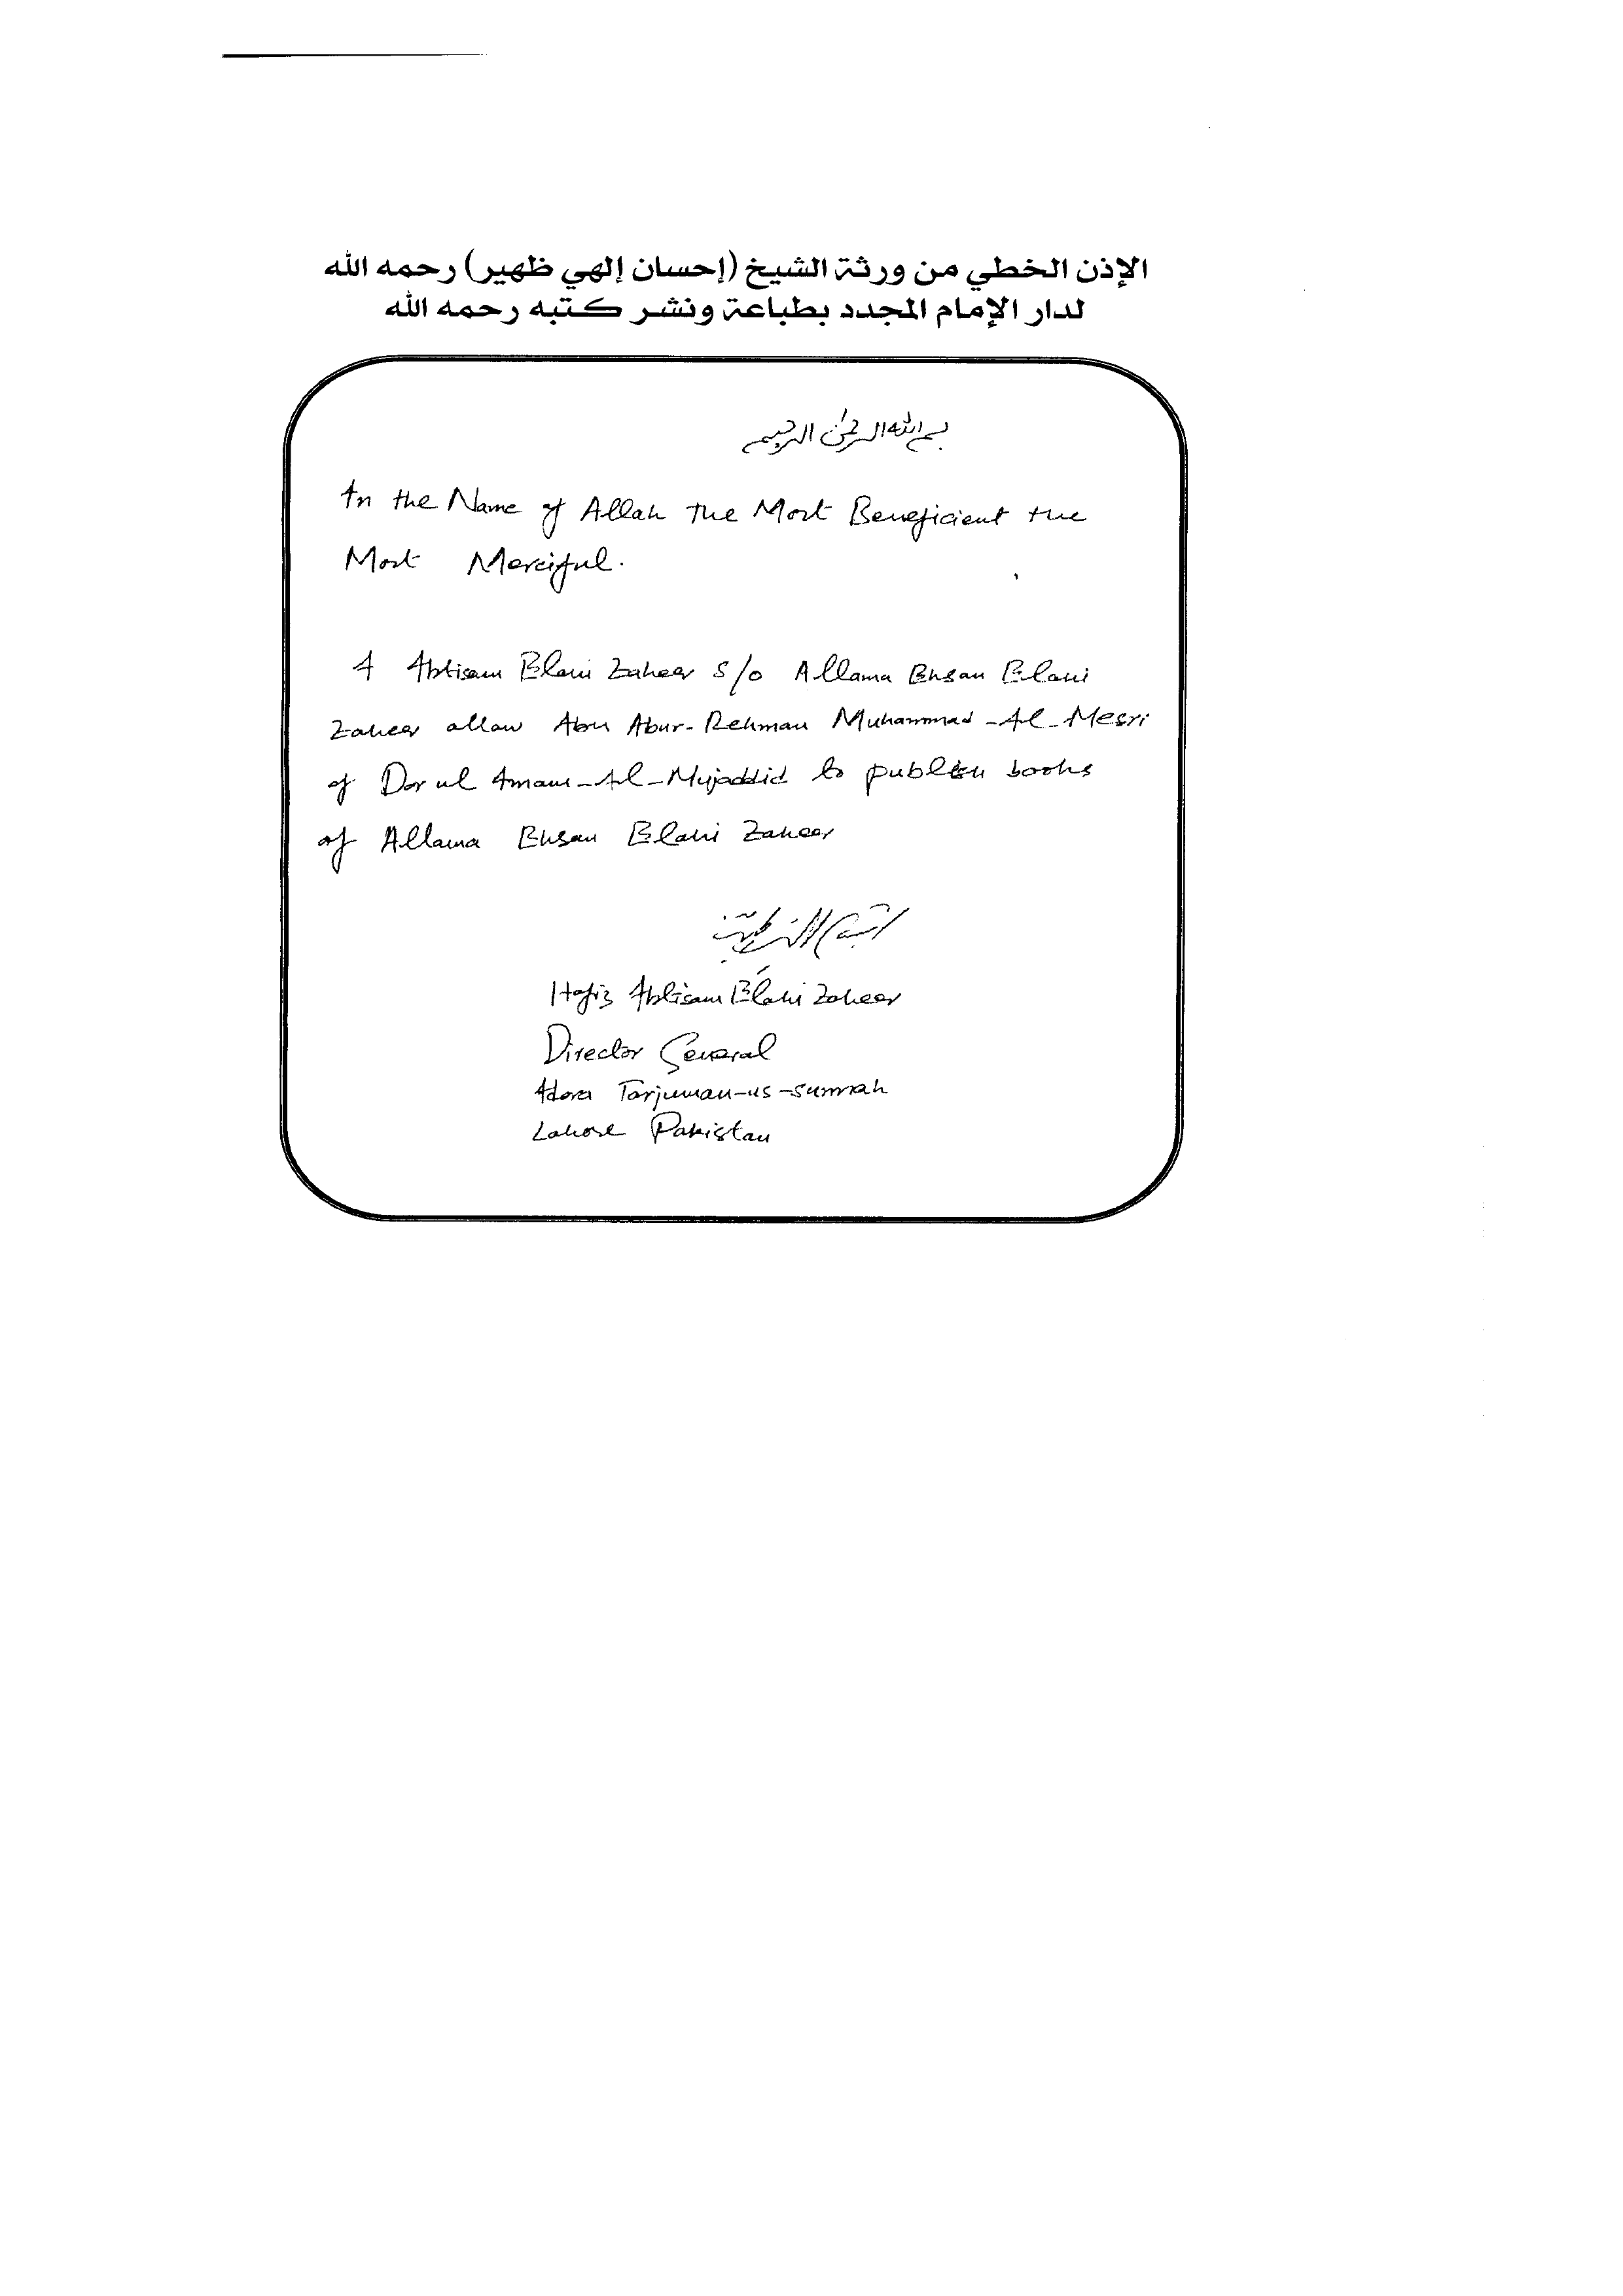 الإذن الخطي من ورثة الشيخ (إحسان إلهي ظهير) رحمه الله
لدار الإمام المجدد بطباعة ونشر كتبه رحمه الله
بسم الله الرحمن الرحيم
In the Name of Allah the Most Beneficient the
Most Merciful.
I Ibtisam Elahi Zaheer S/o Allama Ehsan Elahi
Zaheer allow Abu Abur-Rehman Muhammad-Al-Mesri
of Dar ul Imam-Al-Mujaddid to publish books
of Allama Ehsan Elahi Zaheer
Hafiz Ibtisam Elahi Zaheer
Director General
Idara Tarjuman-us-Sunnah
Lahore Pakistan